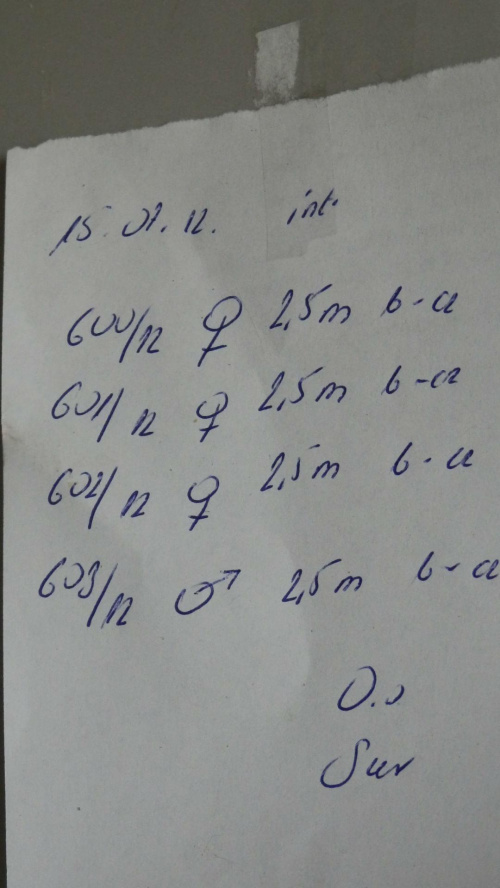 15.07.12. int.
600/12 ♀ 2,5m b-a
601/12 ♀ 2,5m b-a
602/12 ♀ 2,5m b-a
603/12 ♂ 2,5m b-a